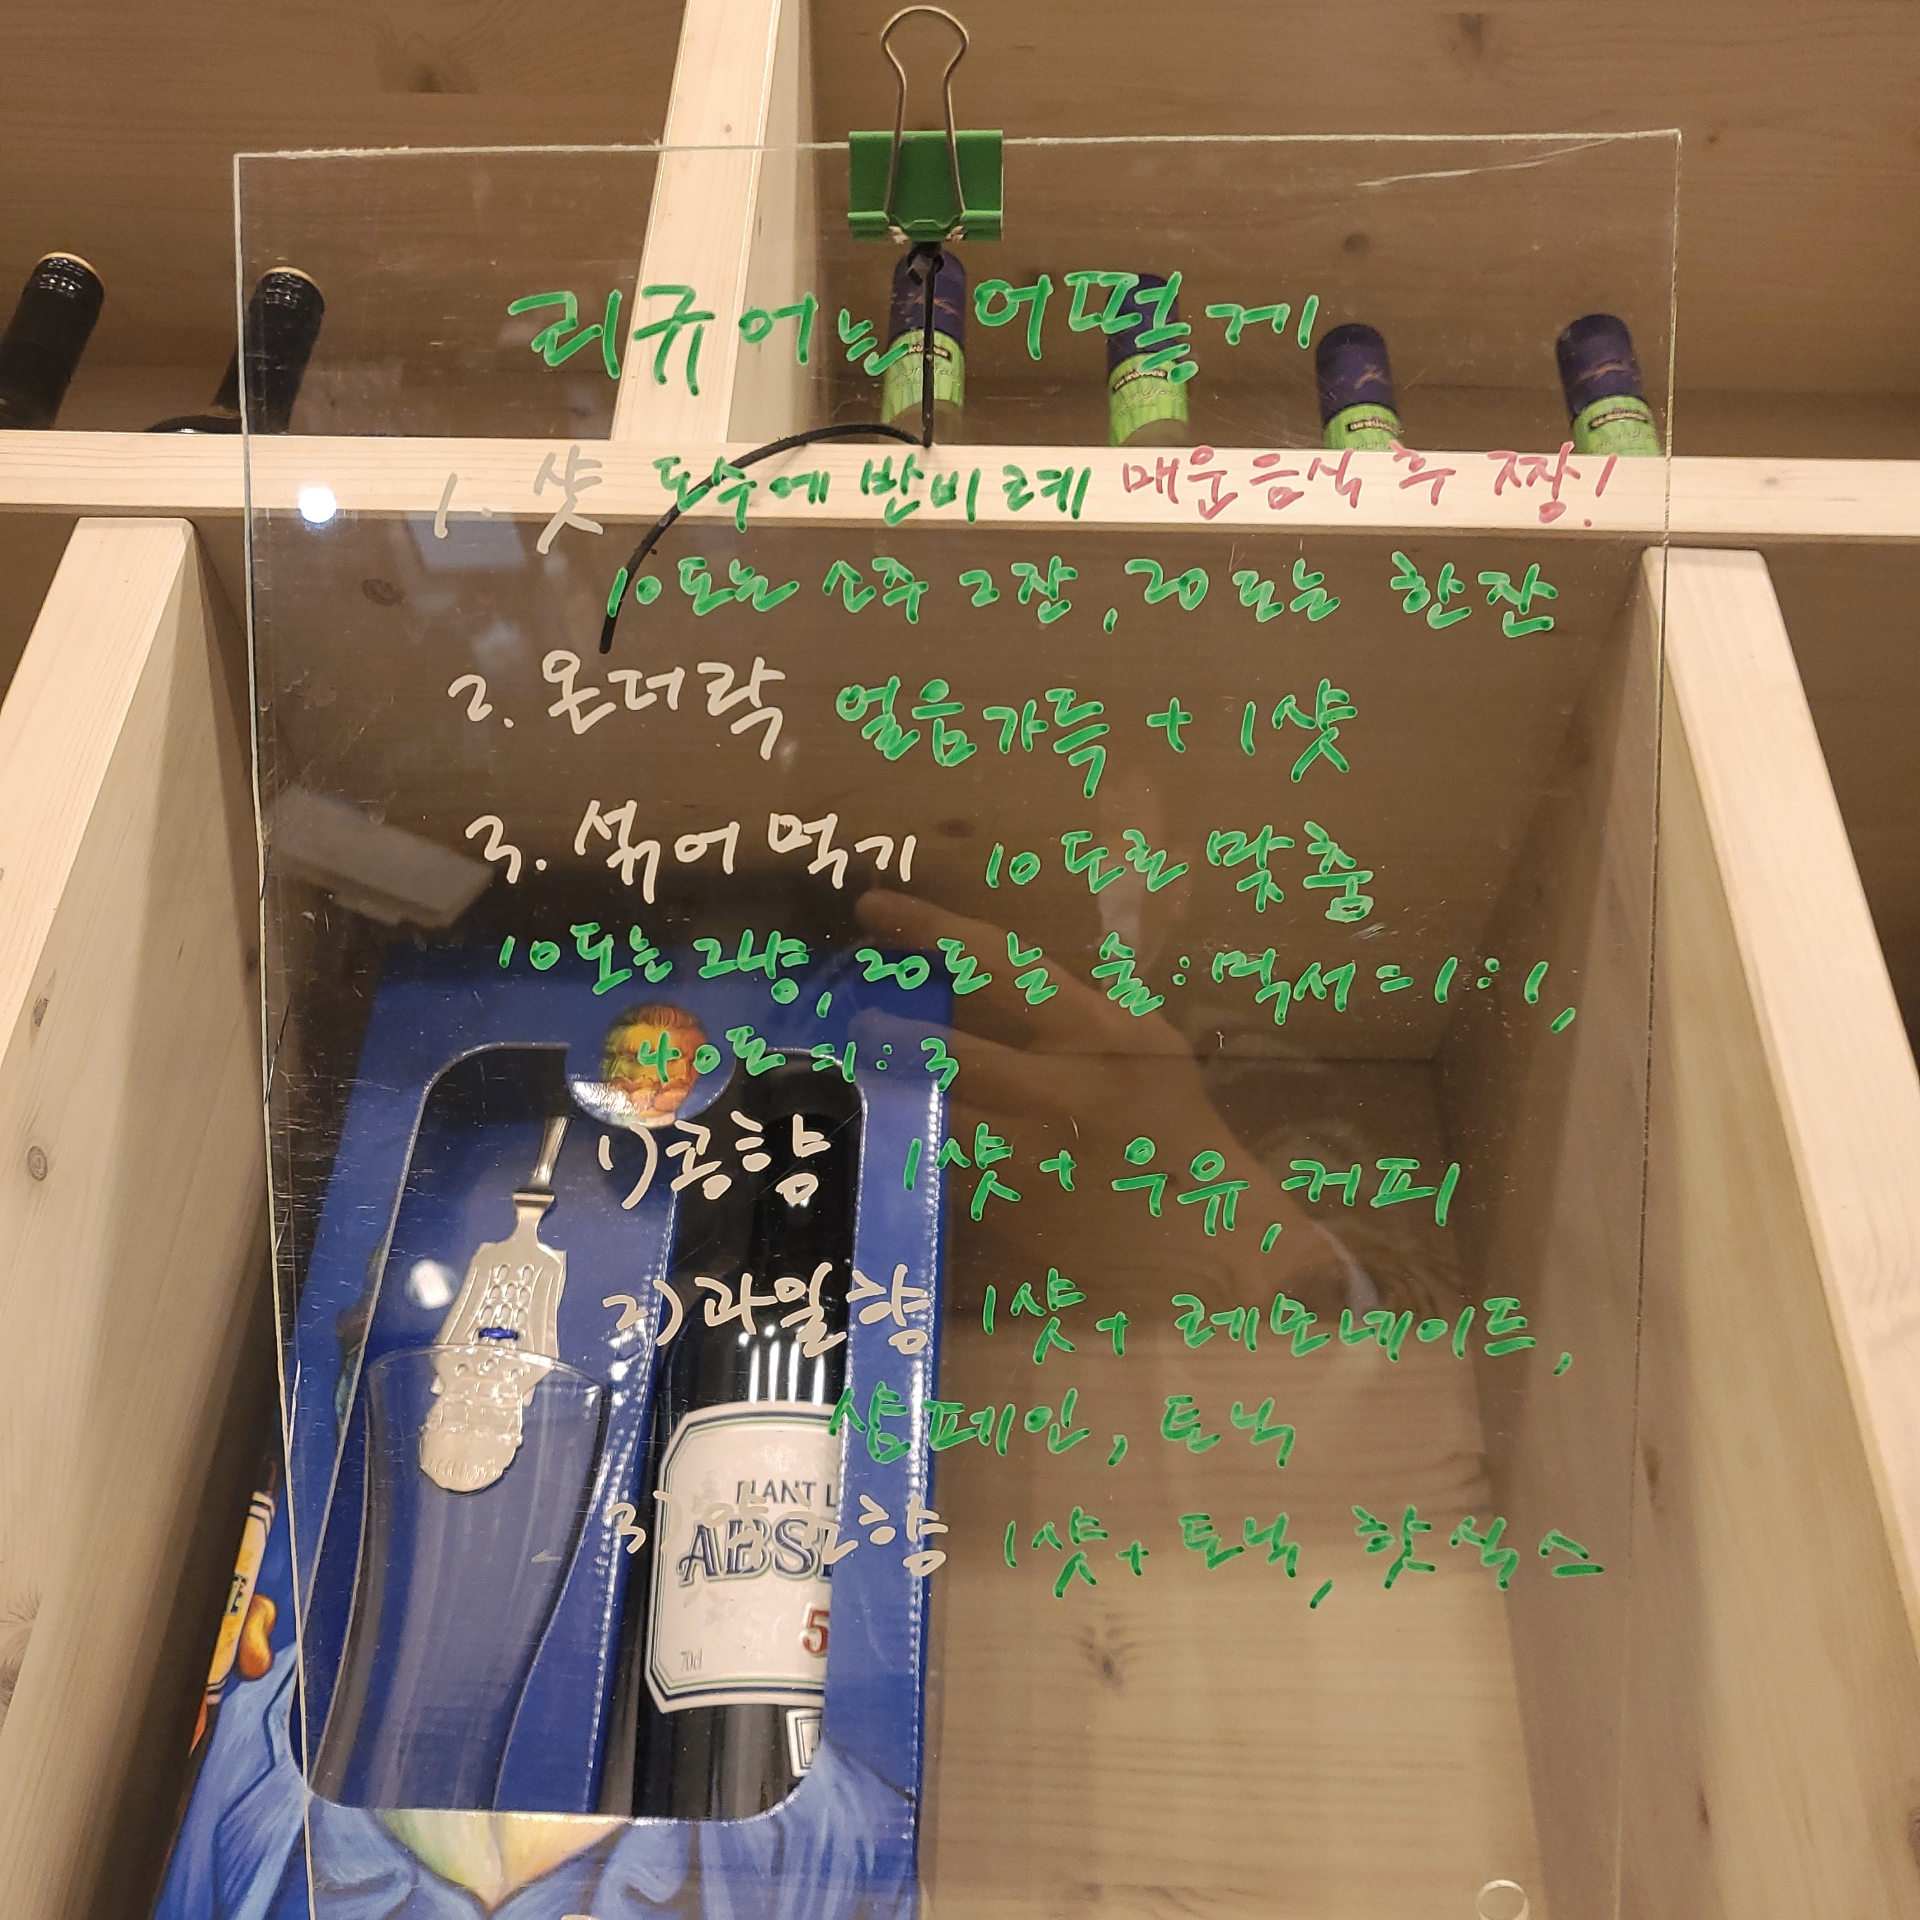 리큐어는 어떻게
1. 샷 도수에 반비례 매운음식 후 짱!
10도는 소주 2잔, 20도는 한잔
2. 온더락 얼음가득 + 1샷
3. 섞어 먹기 10도로 맞춤
10도는 그냥, 20도는 술:먹서=1:1,
40도 = 1:3
1) 콩향 1샷 + 우유, 커피
2) 과일향 1샷 + 레모네이드,
샴페인, 토닉
3) 향 1샷 + 토닉, 핫식스
ABS
5
70cl